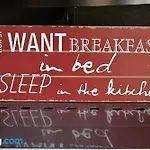 WANT BREAKFAS
in bed
SLEEP in the kitche